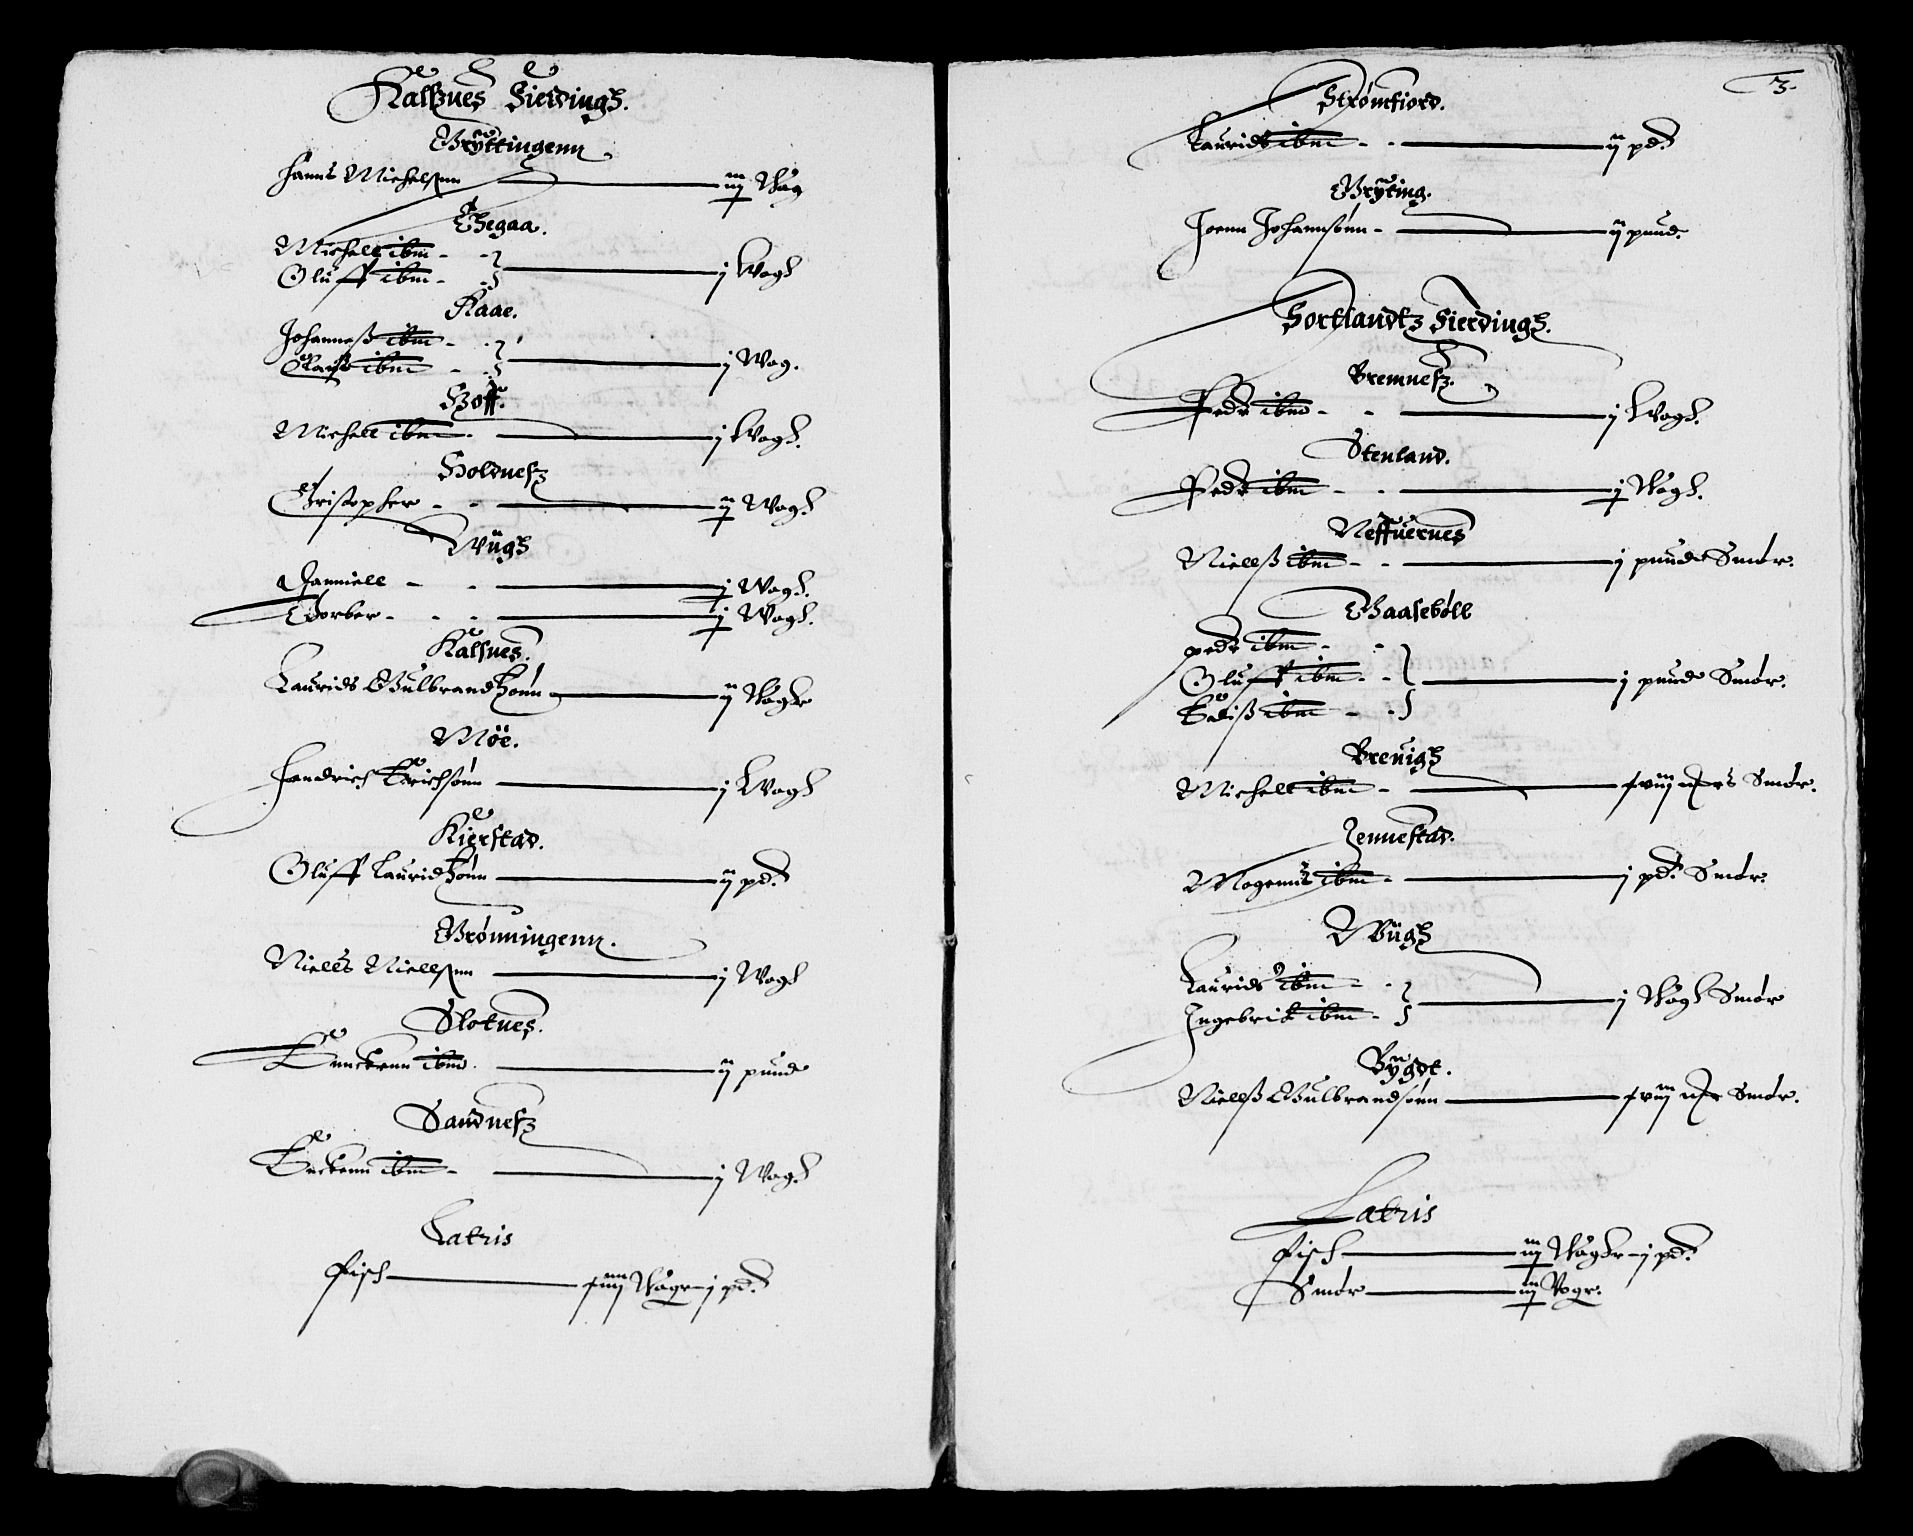 Kalßnes Fierdingh.
Brÿttingenn
Hanns Michelsenn — iij Wag
Thegaa.
Michell ibm - -
Oluff ibm - - — j Wogh
Kaae.
Johanneß ibm - -
Clauß ibm - - — j Wog.
Hoff.
Michell ibm. — j Wogh.
Holdnesz
Christopher - - — ij Wogh.
Wiigh
Janniell - - — j Wogh.
Torber - - - — j Wogh.
Kalsnes.
Laurids Gulbrandzønn — ij Wogher
Möe.
Hendrich Erichsønn — j Wogh
Kierstad.
Oluff Lauridzønn — ij pd.
Brønningenn.
Niells Niellsenn — j Wogh
Slotnes.
Enckenn ibm. — ij pund
Sandnesz
Enckenn ibm - — j Wogh
Latris
Fisch — xiiij Wogr - j pd.
3.
Strømfiord.
Laurids ibm - - — ij pd.
Brÿting.
Joenn Johannsønn - — ij pund.
Sortlandtz Fierdingh.
Bremnesz.
Pedr ibm - - — j Wogh.
Stenland.
Pedr ibm - - — j Wogh.
Neffuernes
Nielß ibm - - — j pund Smør.
Gaasebøll
pedr ibm - -
Oluff ibm - -
ibm - - — j pund Smør.
Breuigh
Michell ibm - — xviij mrk Smør.
Jennestad.
Mogenns ibm - — j pd. Smør.
Wiigh
Laurids ibm - -
Ingebrit ibm - — j Wogh Smør
Bÿgdt.
Nielß Gulbrandsønn — xviij mrk Smør.
Latris
Fisch — iij Wogher - j pd.
Smør — iij Vogr.